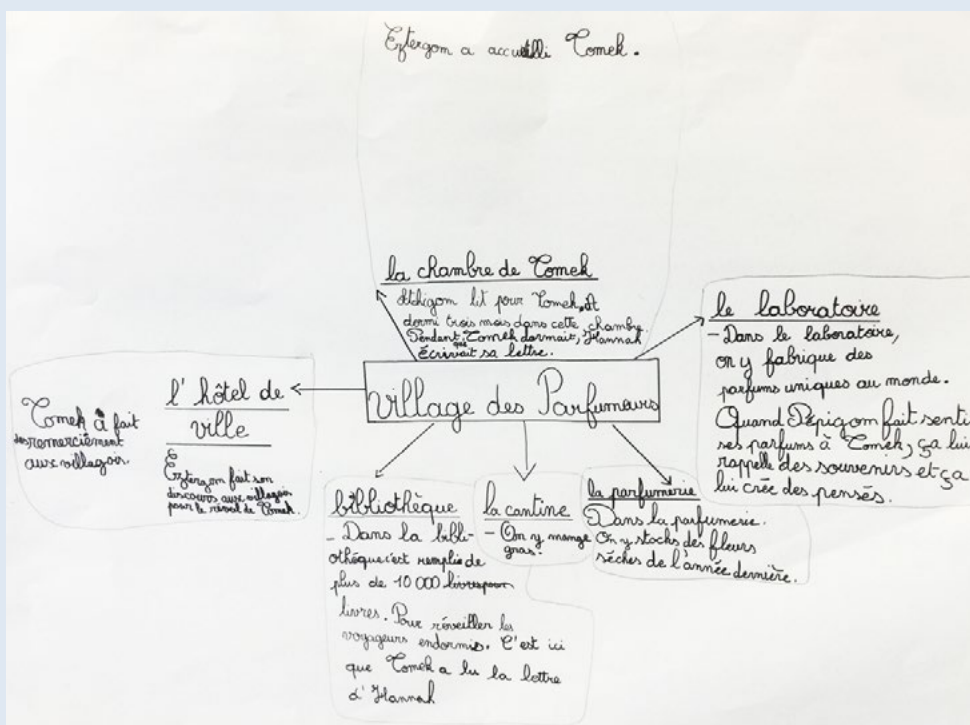 Eztergom a accueilli Tomek.
la chambre de Tomek
Atchigom lit pour Tomek. Il
dormi trois mois dans cette chambre.
Pendent que Tomek dormait, Hannah
écrivait sa lettre.
le laboratoire
- Dans le laboratoire,
on y fabrique des
parfums uniques au monde.
Quand Pépigom fait senti
ses parfums à Tomek, ça lui
rappelle des souvenirs et ça
lui crée des pensés.
village des Parfumeurs
l'hôtel de
ville
Tomek à fait
des remerciement
aux villagois.
Eztergom fait son
discours aux villagois
pour le réveil de Tomek.
bibliothèque
- Dans la bibli-
othéque c'est remplie de
plus de 10 000
livres. Pour réveiller les
voyageurs endormis. C'est ici
que Tomek a lu la lettre
d'Hannah
la cantine
- On y mange
gras.
la parfumerie
Dans la parfumerie.
On y stocks des fleurs
séches de l'année dernière.